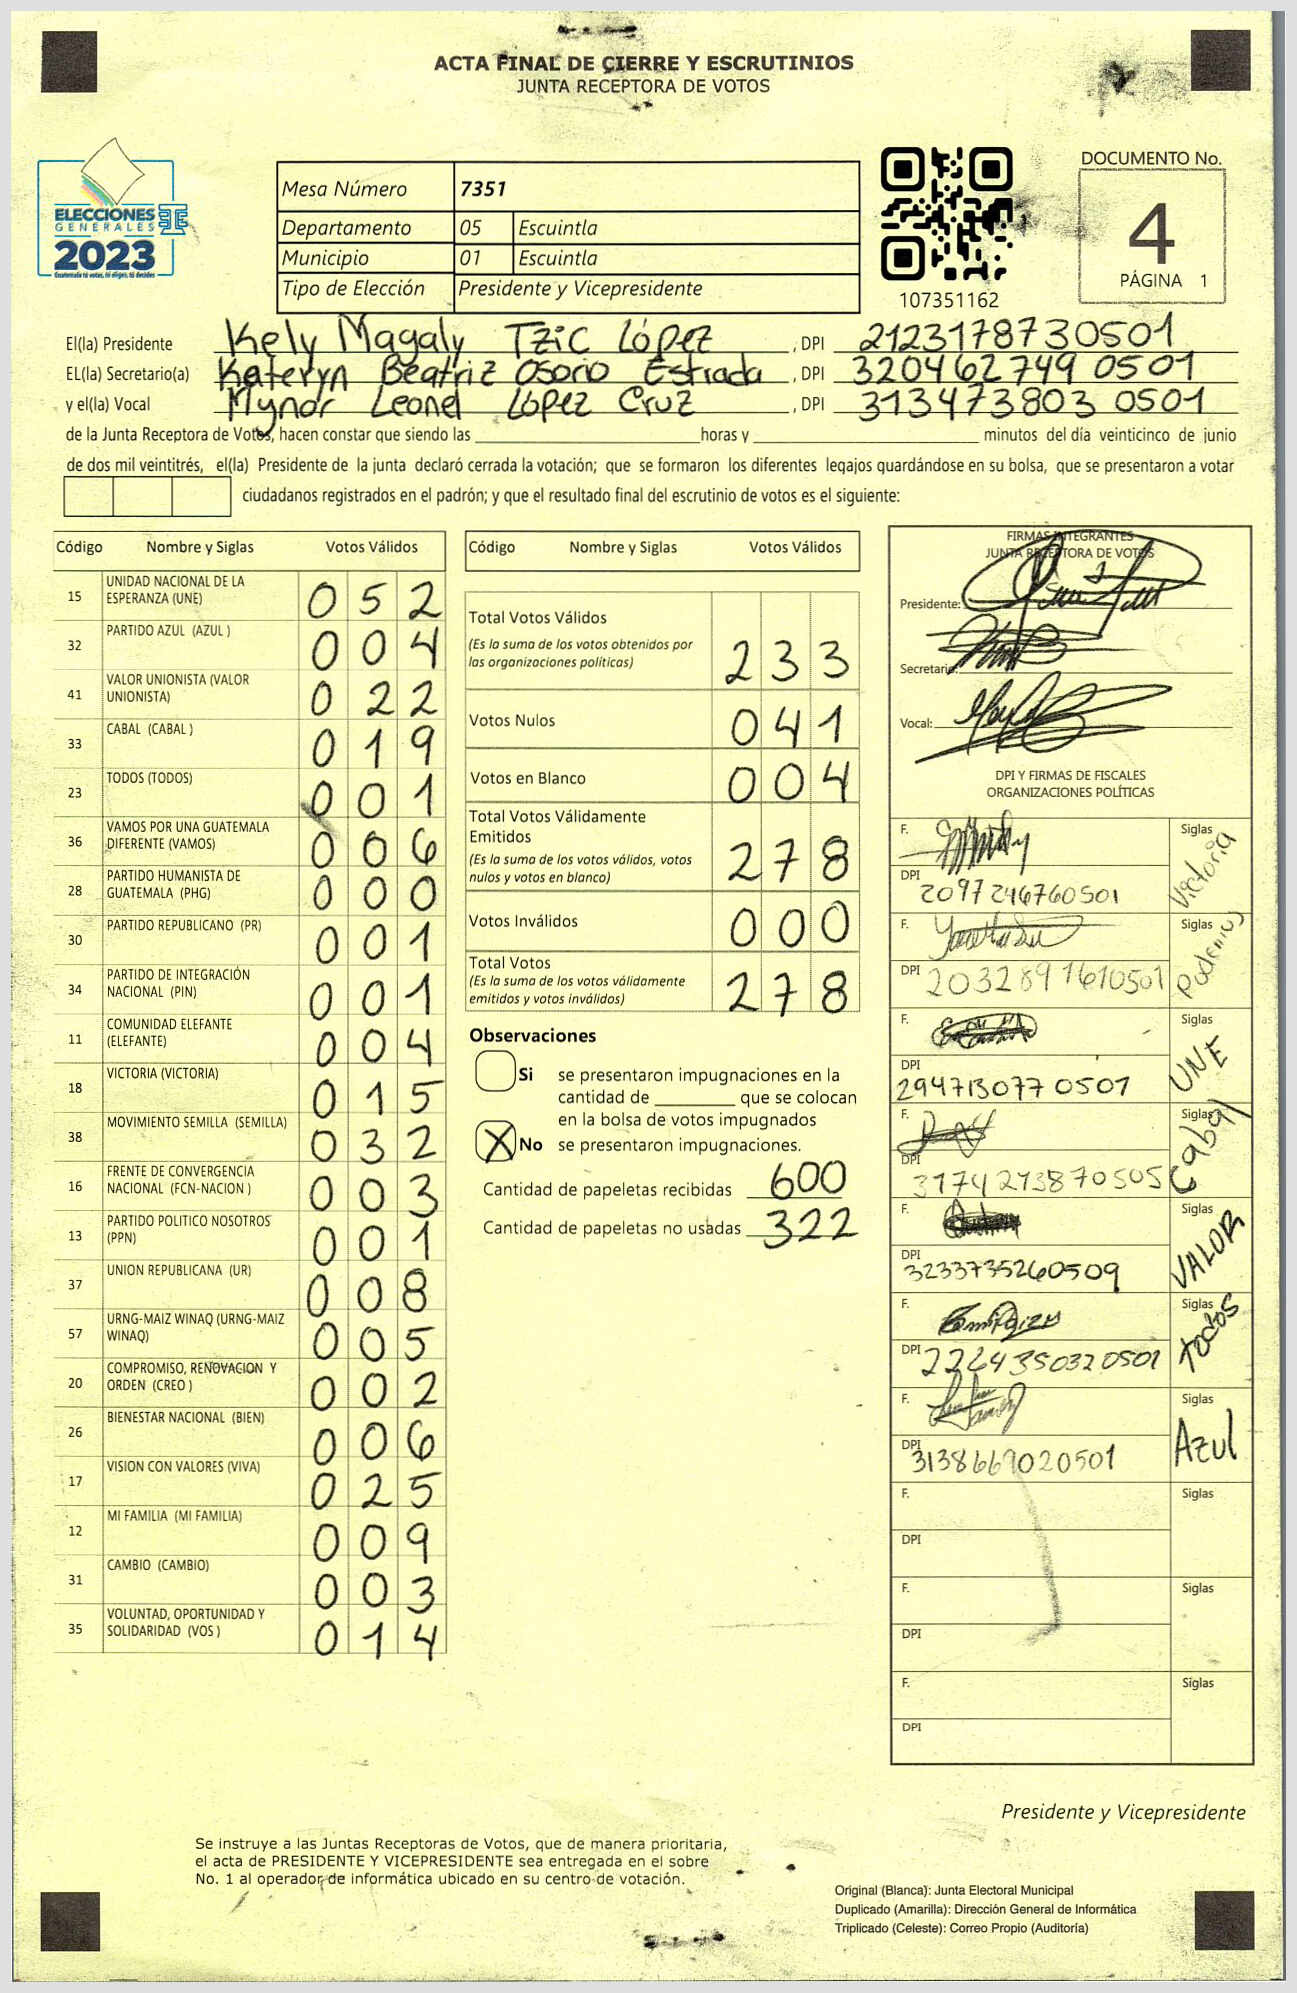 ACTA FINAL DE CIERRE Y ESCRUTINIOS
JUNTA RECEPTORA DE VOTOS
ELECCIONES
GENERALES
2023
Guatemala tú votas, tú eliges, tú decides
Mesa Número 7351
Departamento 05 Escuintla
Municipio 01 Escuintla
Tipo de Elección Presidente y Vicepresidente
107351162
DOCUMENTO No.
4
PÁGINA 1
El(la) Presidente Kely Magaly Tzic López , DPI 2123178730501
EL(la) Secretario(a) Kateryn Beatriz Osorio Estrada , DPI 3204627490501
y el(la) Vocal Mynor Leonel López Cruz , DPI 3134738030501
de la Junta Receptora de Votos, hacen constar que siendo las horas y minutos del día veinticinco de junio
de dos mil veintitrés, el(la) Presidente de la junta declaró cerrada la votación; que se formaron los diferentes legajos quardándose en su bolsa, que se presentaron a votar
ciudadanos registrados en el padrón; y que el resultado final del escrutinio de votos es el siguiente:
Código Nombre y Siglas Votos Válidos
15 UNIDAD NACIONAL DE LA ESPERANZA (UNE) 052
32 PARTIDO AZUL (AZUL ) 004
41 VALOR UNIONISTA (VALOR UNIONISTA) 022
33 CABAL (CABAL ) 019
23 TODOS (TODOS) 001
36 VAMOS POR UNA GUATEMALA DIFERENTE (VAMOS) 006
28 PARTIDO HUMANISTA DE GUATEMALA (PHG) 000
30 PARTIDO REPUBLICANO (PR) 001
34 PARTIDO DE INTEGRACIÓN NACIONAL (PIN) 001
11 COMUNIDAD ELEFANTE (ELEFANTE) 004
18 VICTORIA (VICTORIA) 015
38 MOVIMIENTO SEMILLA (SEMILLA) 032
16 FRENTE DE CONVERGENCIA NACIONAL (FCN-NACION ) 003
13 PARTIDO POLITICO NOSOTROS (PPN) 001
37 UNION REPUBLICANA (UR) 008
57 URNG-MAIZ WINAQ (URNG-MAIZ WINAQ) 005
20 COMPROMISO, RENOVACION Y ORDEN (CREO ) 002
26 BIENESTAR NACIONAL (BIEN) 006
17 VISION CON VALORES (VIVA) 025
12 MI FAMILIA (MI FAMILIA) 009
31 CAMBIO (CAMBIO) 003
35 VOLUNTAD, OPORTUNIDAD Y SOLIDARIDAD (VOS ) 014
Código Nombre y Siglas Votos Válidos
Total Votos Válidos 233
(Es la suma de los votos obtenidos por
las organizaciones políticas)
Votos Nulos 041
Votos en Blanco 004
Total Votos Válidamente
Emitidos 278
(Es la suma de los votos válidos, votos
nulos y votos en blanco)
Votos Inválidos 000
Total Votos 278
(Es la suma de los votos válidamente
emitidos y votos inválidos)
Observaciones
Si se presentaron impugnaciones en la
cantidad de que se colocan
en la bolsa de votos impugnados
X No se presentaron impugnaciones.
Cantidad de papeletas recibidas 600
Cantidad de papeletas no usadas 322
FIRMAS INTEGRANTES
JUNTA RECEPTORA DE VOTOS
Presidente:
Secretario:
Vocal:
DPI Y FIRMAS DE FISCALES
ORGANIZACIONES POLÍTICAS
F. Siglas Victoria
DPI 2097246760501
F. Siglas Podemos
DPI 2032891610501
F. Siglas UNE
DPI 2947130770501
F. Siglas Cabal
DPI 3174213870505
F. Siglas VALOR
DPI 3233735260509
F. Siglas Todos
DPI 2264350320501
F. Siglas Azul
DPI 3138669020501
F. Siglas
DPI
F. Siglas
DPI
F. Siglas
DPI
Presidente y Vicepresidente
Se instruye a las Juntas Receptoras de Votos, que de manera prioritaria,
el acta de PRESIDENTE Y VICEPRESIDENTE sea entregada en el sobre
No. 1 al operador de informática ubicado en su centro de votación.
Original (Blanca): Junta Electoral Municipal
Duplicado (Amarilla): Dirección General de Informática
Triplicado (Celeste): Correo Propio (Auditoría)